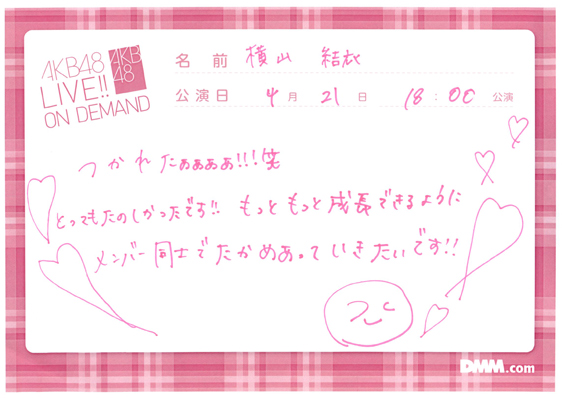 AKB48
LIVE!!
ON DEMAND
AKB
48
名前 横山 結衣
公演日 4月21日 18:00 公演
つかれたぁぁぁぁ!!!笑
とってもたのしかったです!! もっともっと成長できるように
メンバー同士でたかめあっていきたいです!!
DMM.com